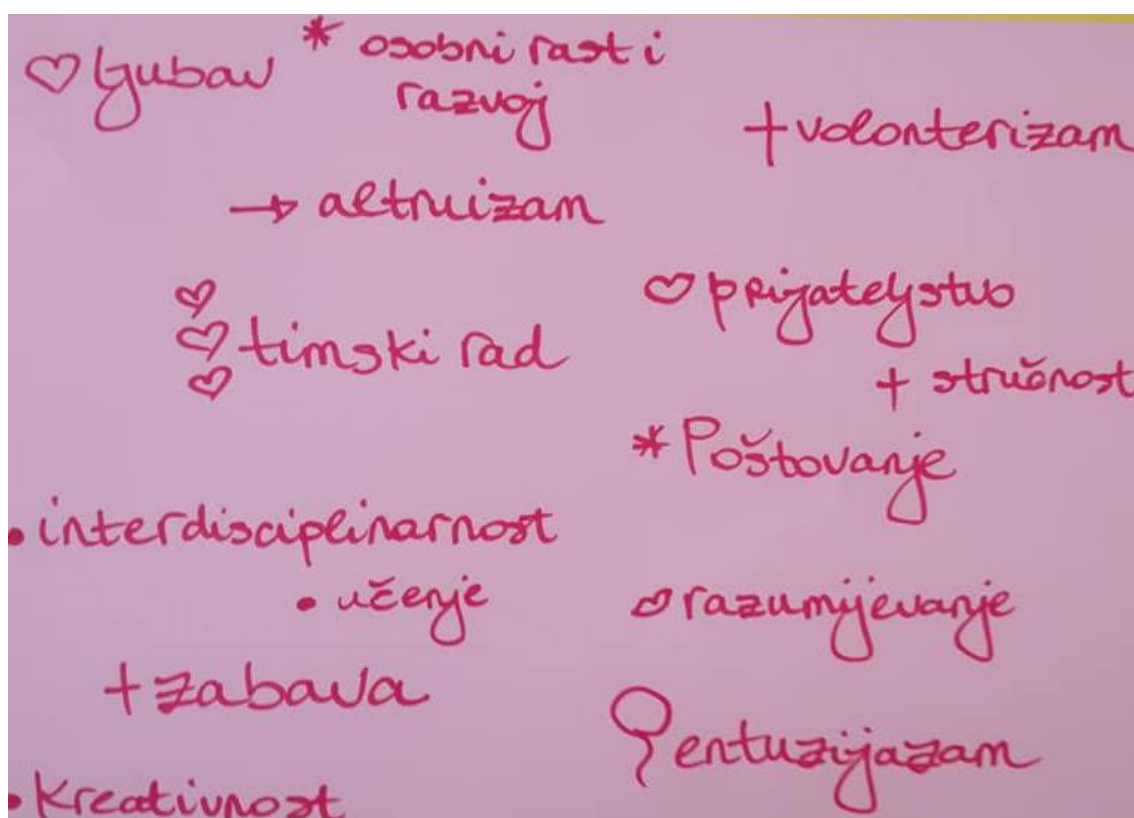 ♡ ljubav
* osobni rast i
razvoj
+ volonterizam
→ altruizam
♡ prijateljstvo
♡♡♡ timski rad
+ stručnost
* Poštovanje
• interdisciplinarnost
• učenje
♡ razumijevanje
+ zabava
entuzijazam
• Kreativnost